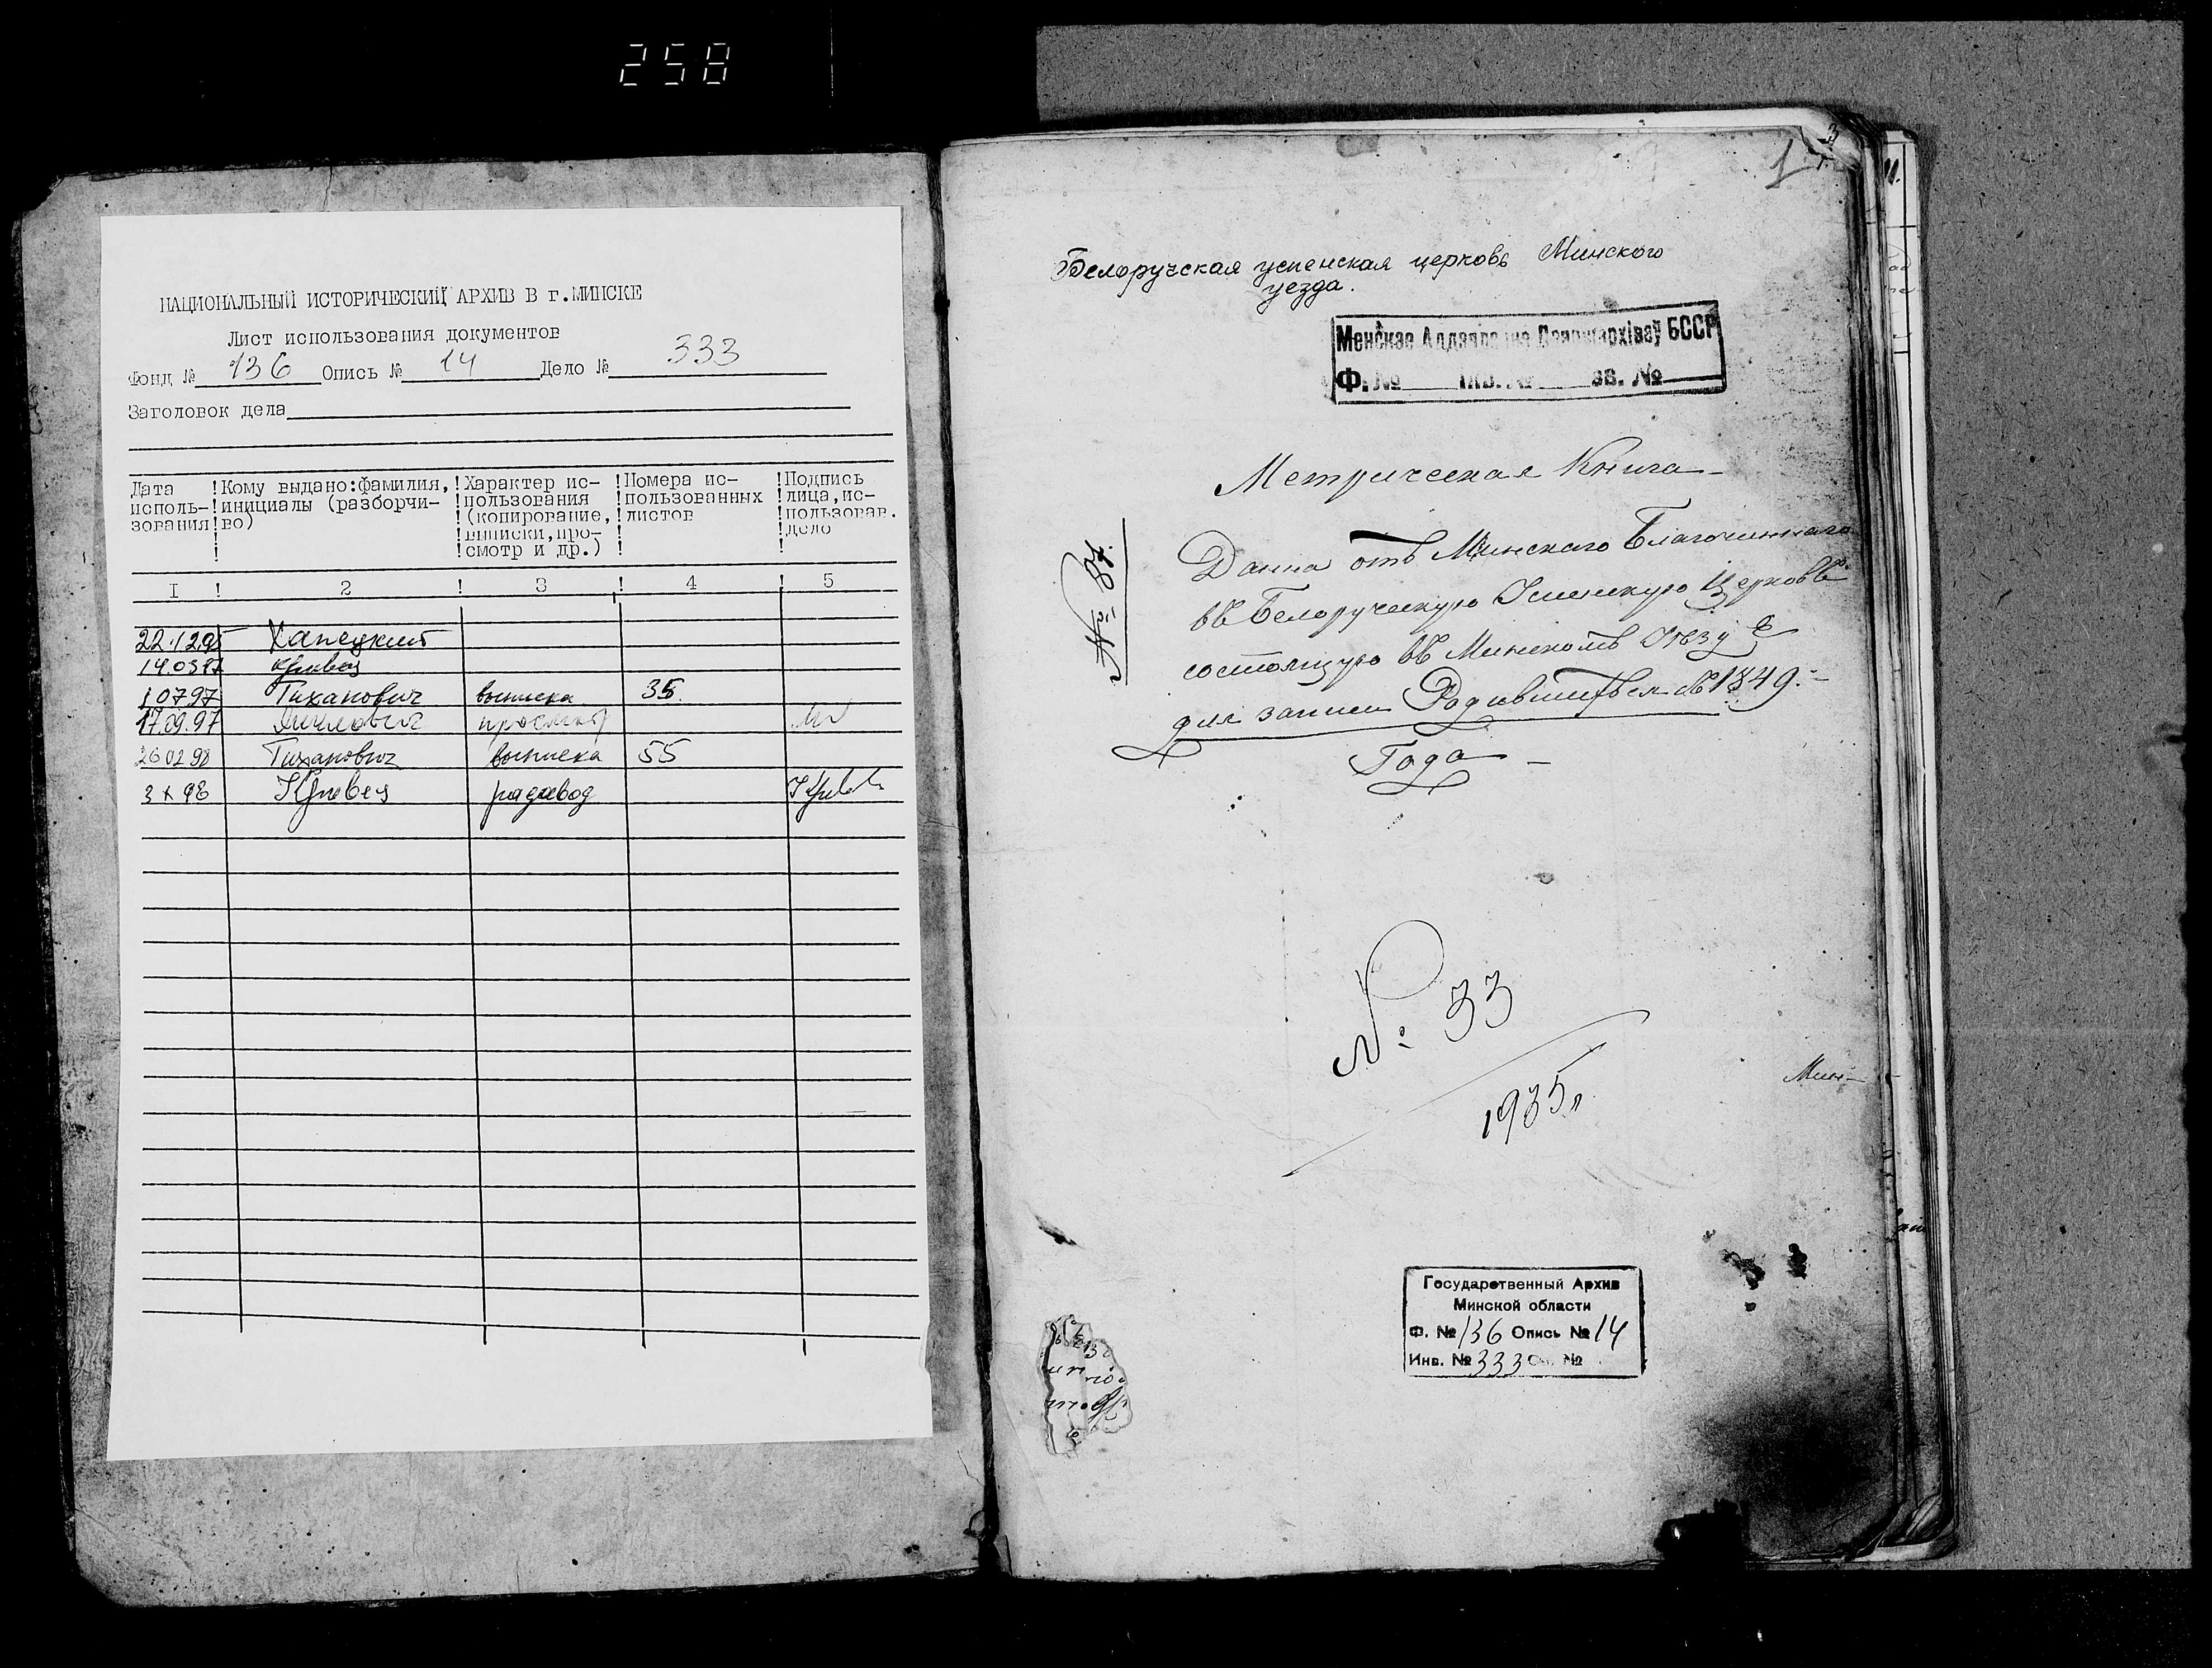 258
НАЦИОНАЛЬНЫЙ ИСТОРИЧЕСКИЙ АРХИВ В г.МИНСКЕ
Лист использования документов
Фонд № 136 Опись № 14 Дело № 333
Заголовок дела
Дата исполь-зования ! Кому выдано:фамилия, инициалы (разборчи-во) ! Характер ис-пользования (копирование, выписки,про-смотр и др.) ! Номера ис-пользованных листов ! Подпись лица,ис-пользовав. дело
I ! 2 ! 3 ! 4 ! 5
22.12.95 Ханецкий
14.03.97 Кривец
10797 Тиханович выписка 35
17.09.97 просмотр
260298 Тиханович выписка 55
3 X 98 Кривец радавод
1
3
Белоручская успенская церковь Минского
уезда.
БССР
Ф. №
Метрическая Книга
Данна отъ Минскаго Благочиннаго
въ Белоручскую Успенскую Церковь
состоящую въ Минскомъ Уезде
для записи Родившихся 1849.
Года
№ 33
1935г
Мин-
Государственный Архив
Минской области
Ф. № 136 Опись № 14
Инв. № 333 №